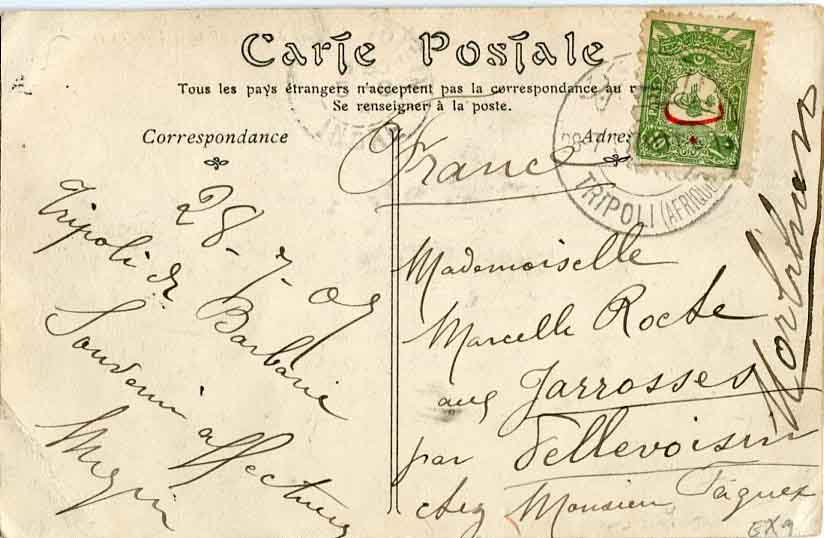 Carte Postale
Tous les pays étrangers n'acceptent pas la correspondance au
Se renseigner à la poste.
Correspondance
Adres
28-7-09
Tripoli de
Barbarie
Souvenir affectueux
France
Mademoiselle
Marcelle Roche
aux Jarrosses
par Pellevoisin
chez Monsieur
Morbihan
TRIPOLI (AFRIQUE